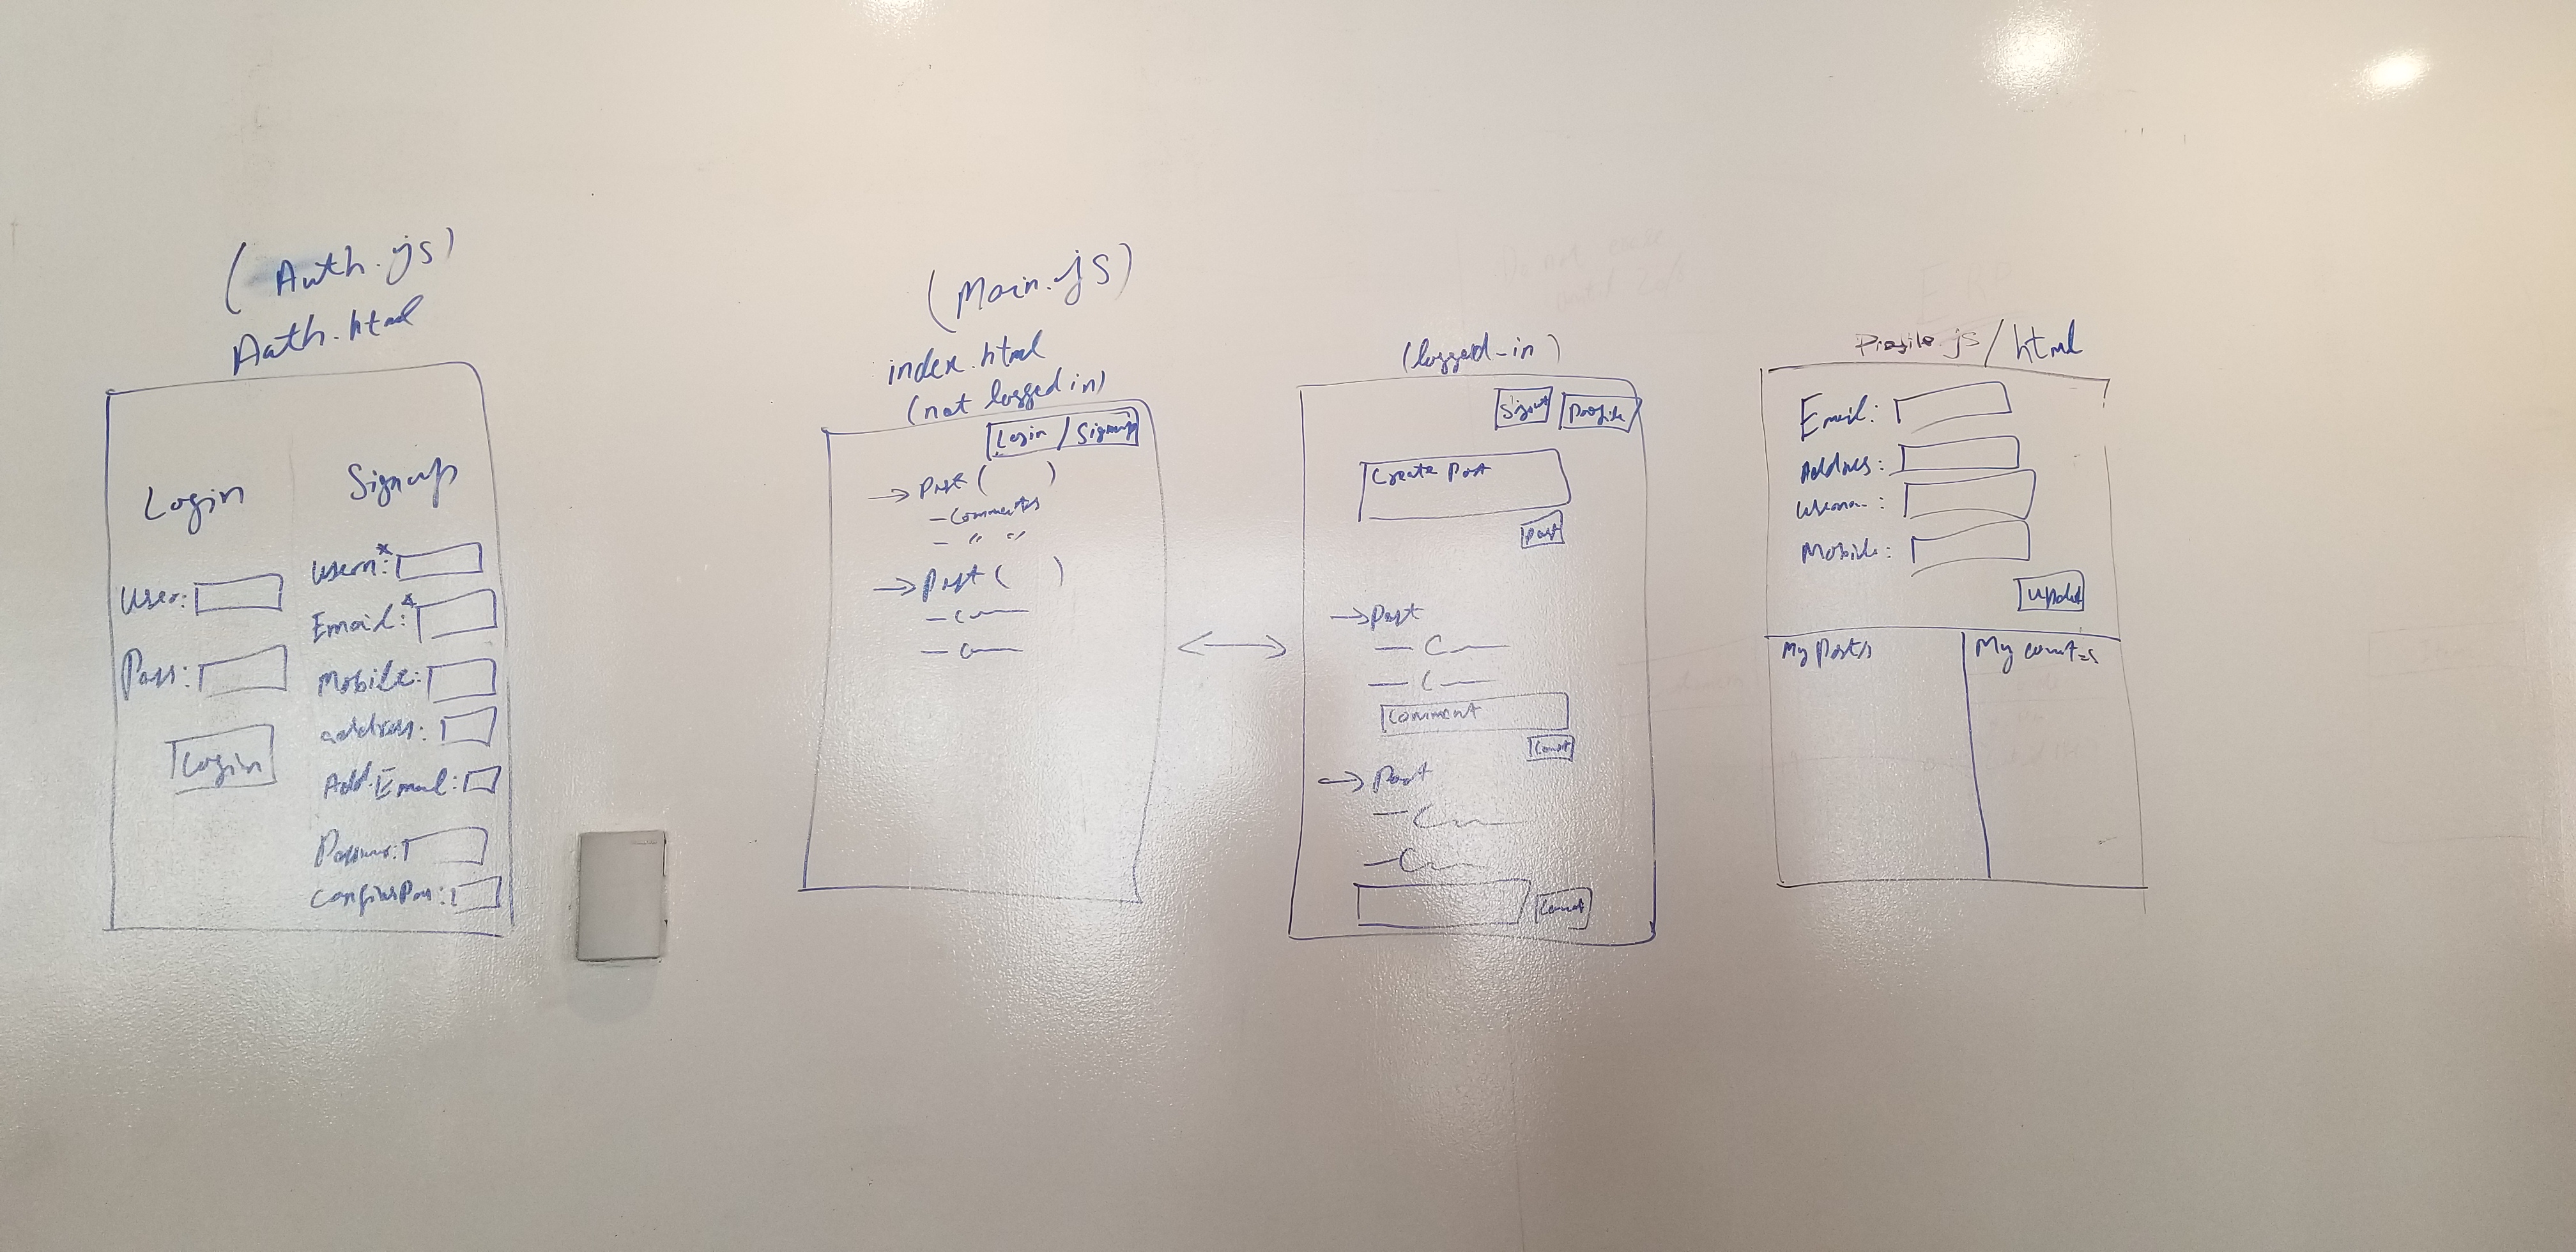 (Auth.js)
Auth.html
Login
User:
Pass:
Login
Signup
Usern*:
Email*:
Mobile:
address:
Add.Email:
(Main.js)
index.html
(not logged in)
Login / Signup
→ Post ( )
- Comments
- " "
→ Post ( )
(logged-in)
Signout
Profile
Create Post
Post
→ Post
Comment
→ Post
Profile.js / html
Email:
Address:
Mobile:
Update
My Posts
My